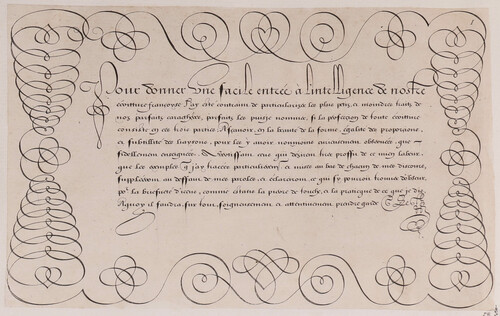 1
Pour donner Vne facile entrée à l'intelligence de nostre
écriture françoyse J'ay esté contraint de particularizer les plus petis et moindres traits de
nos parfaits caractheres, parfaits les puis-je nommer, si la perfection de toute écriture
consiste en ces trois parties Asçauoir, en la beauté de la forme, egalité des proportions,
et subtilité des liaizons, pour les y auoir non obseruées, que
fidellement enseignées. ceux qui desirent tirer proffit de ce mien labeur,
que les exemples que j'ay tracées particulieres, et mises au bas de chacun de mes discours,
suppléeront au deffaut de mes paroles et éclairciront ce qui s'y pourroit trouuer d'obscur,
pour la briefueté d'iceux, comme estans la pierre de touche, et la pratique de ce que je dis
Aquoy il faudra sur tout soigneusement et attentiuement prendre garde